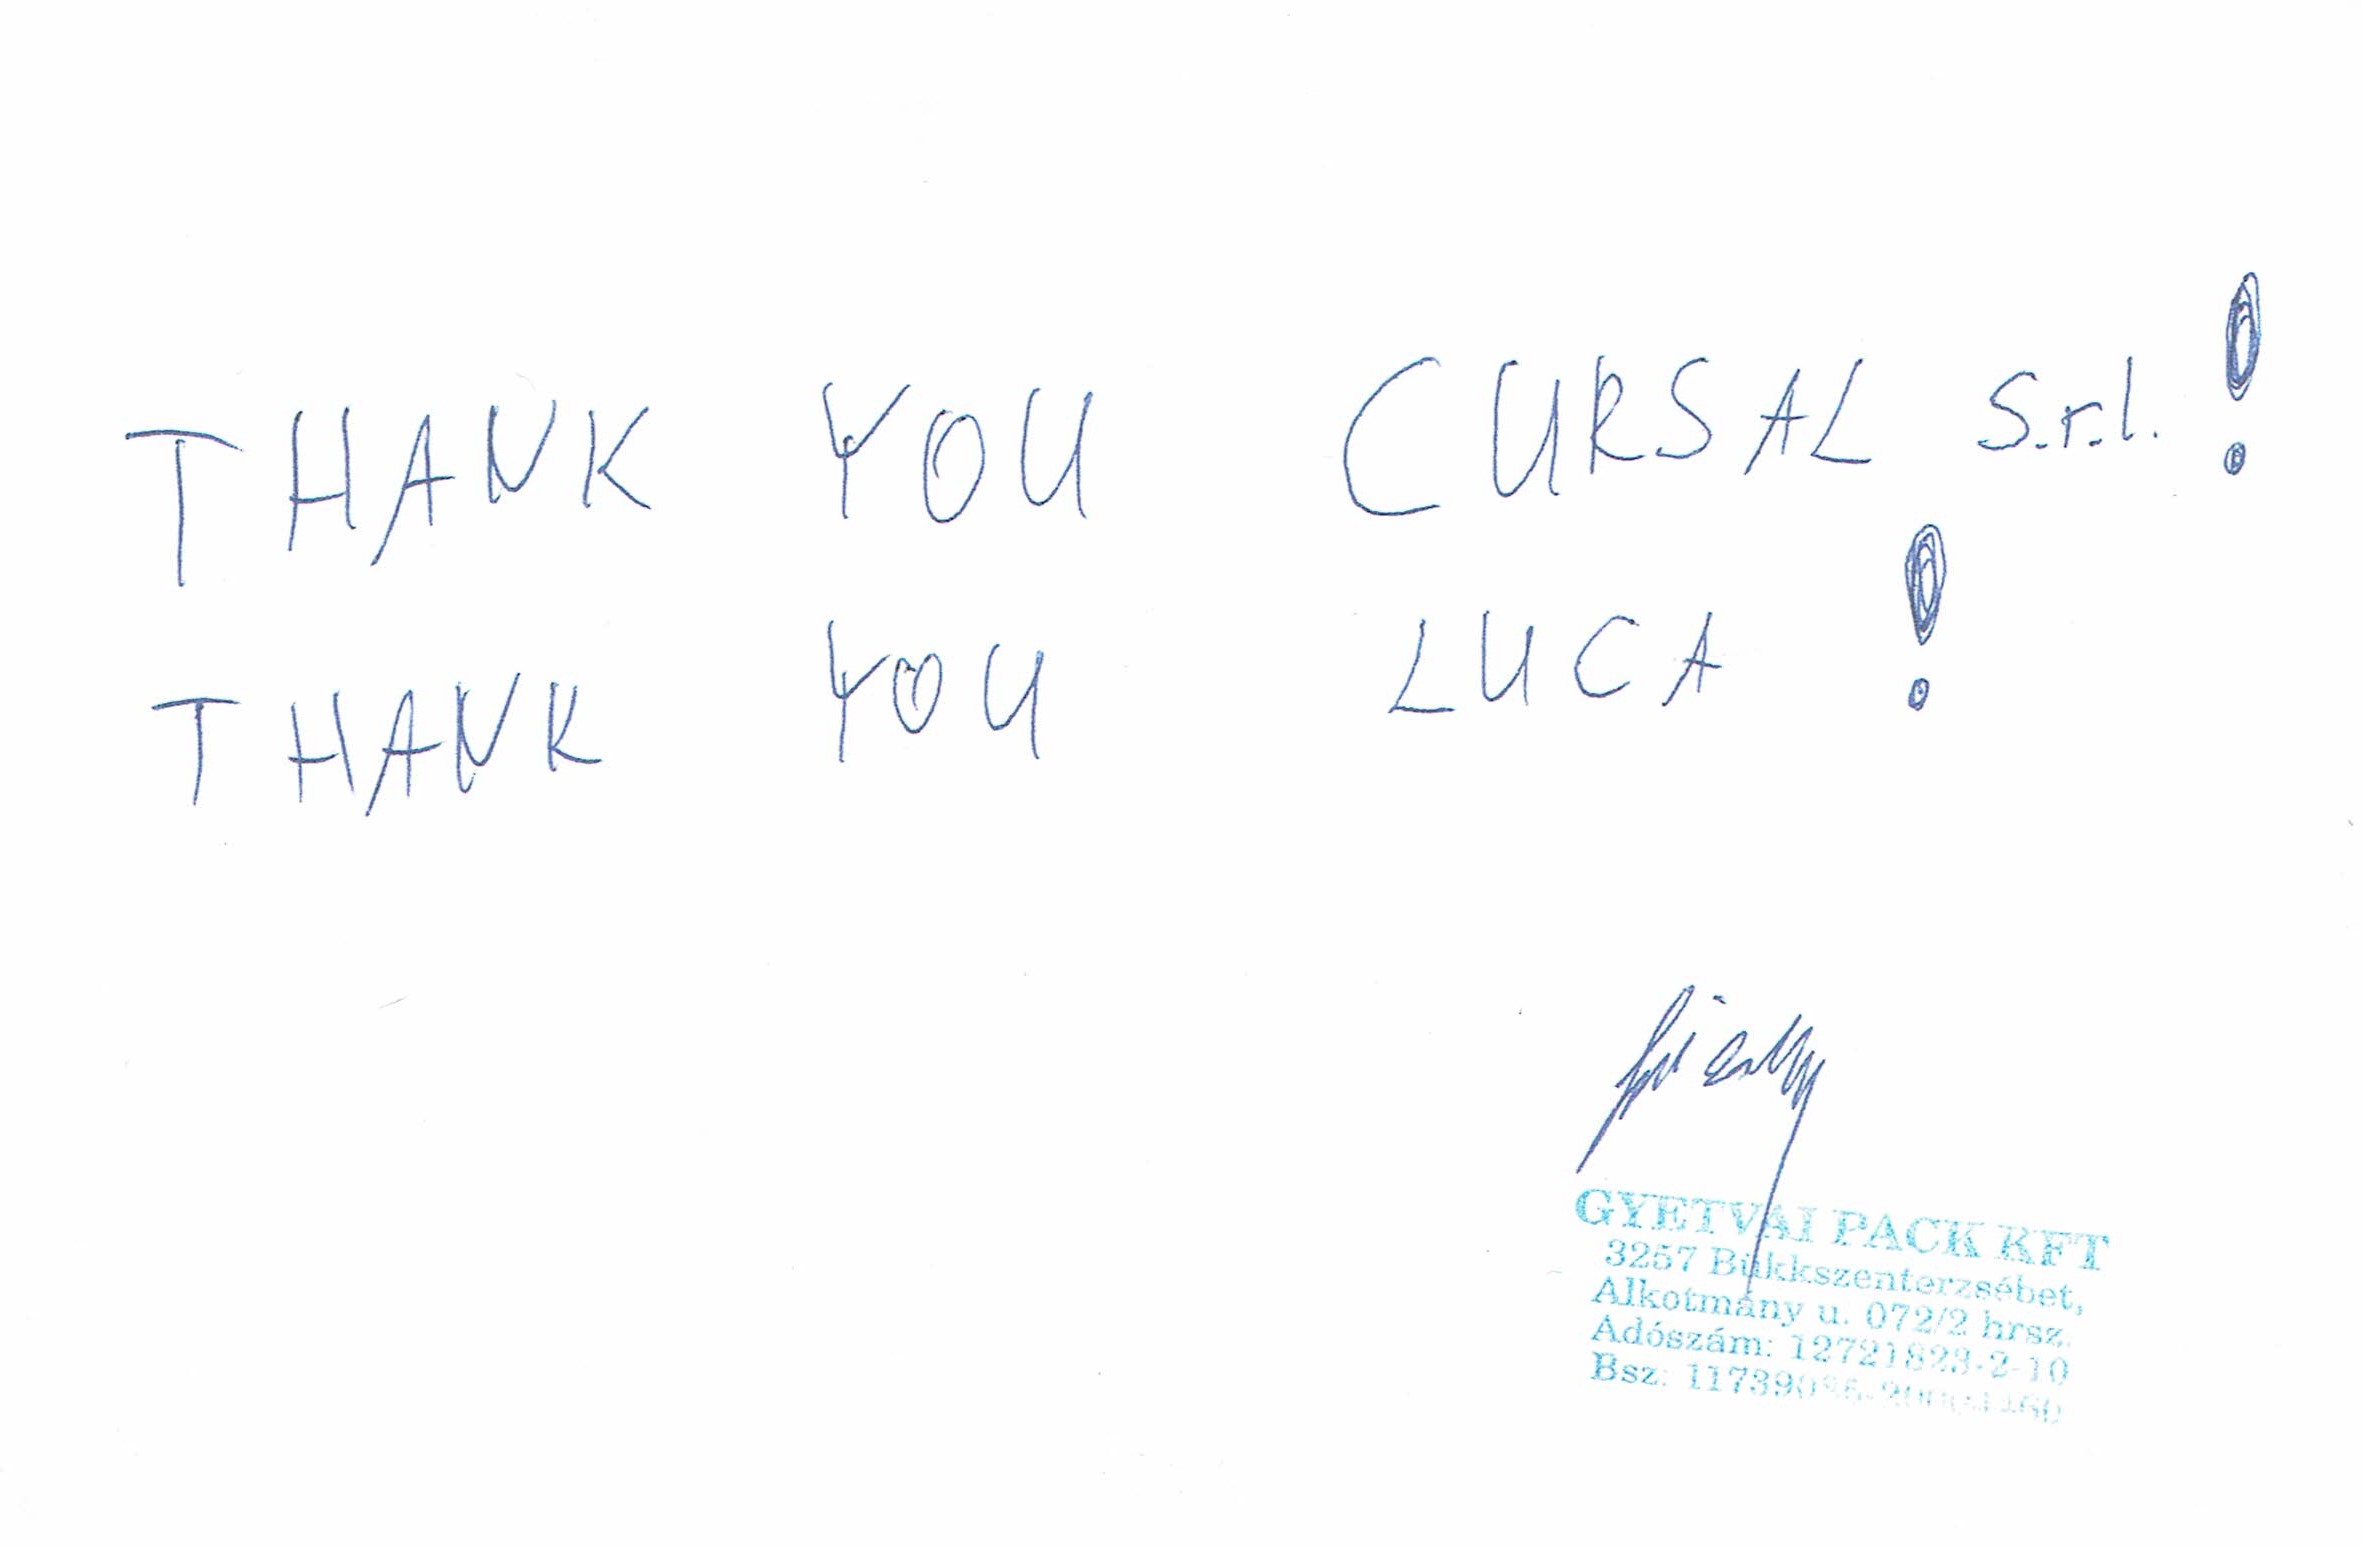 THANK YOU CURSAL S.r.l.!
THANK YOU LUCA!
GYETVAI PACK KFT
3257 Bükkszenterzsébet,
Alkotmány u. 072/2 hrsz.
Adószám: 12721823-2-10
Bsz: